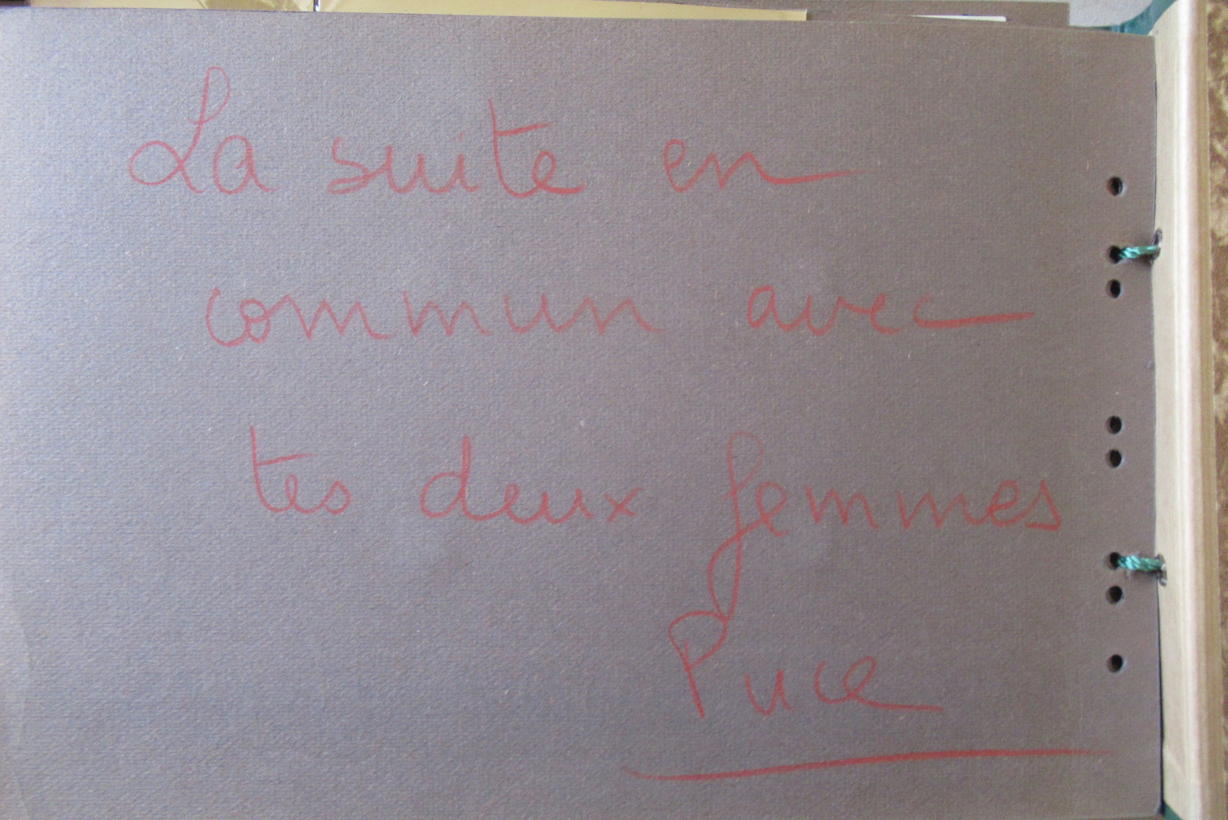 La suite en
commun avec
tes deux femmes
Puce